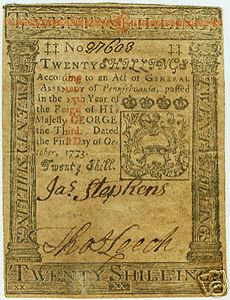 TWENTY SHILLINGS
No 97608
TWENTY SHILLINGS
According to an Act of GENERAL
ASSEMBLY of Pennsylvania, passed
in the 13th Year of
the Reign of His
Majesty GEORGE
the Third. Dated
the First Day of Oc-
tober, 1773.
Twenty Shill.
Jas Stephens
Tho Leech
TWENTY SHILLINGS
XX XX
TWENTY SHILLINGS
TWENTY SHILLINGS